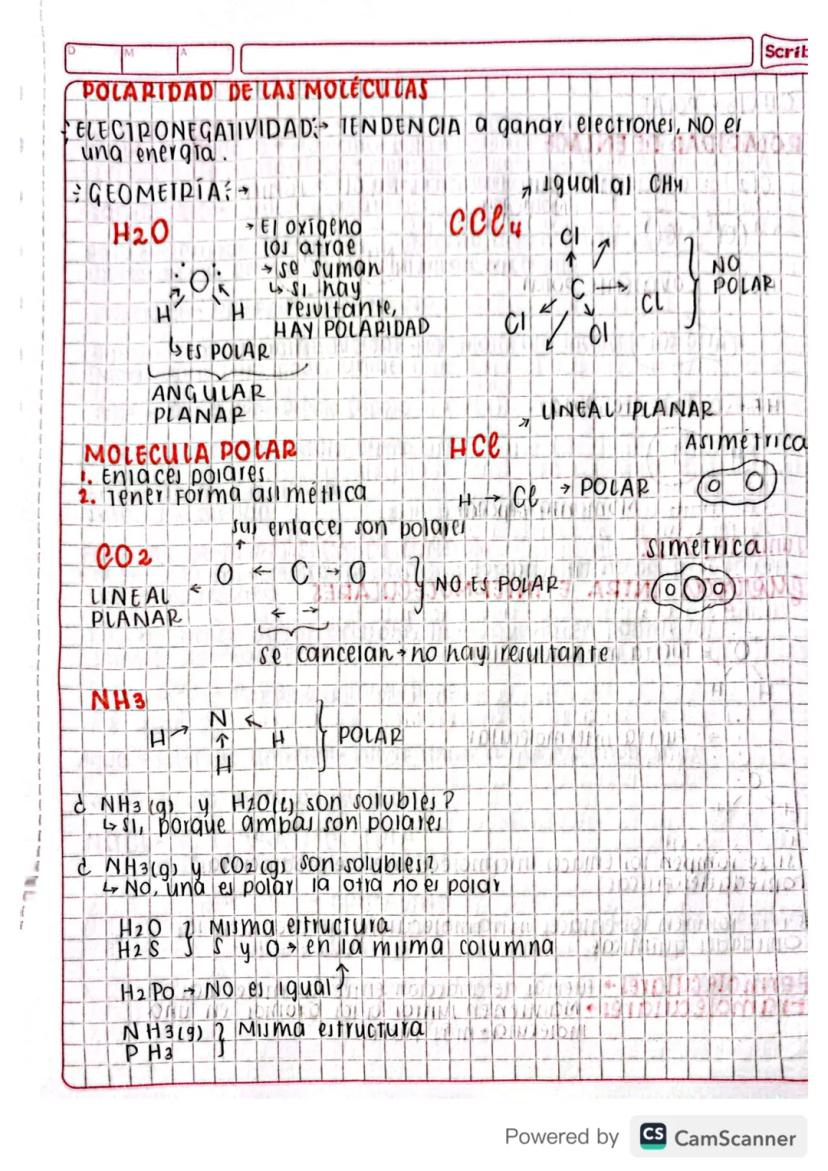 D M A
Scrib
POLARIDAD DE LAS MOLÉCULAS
ELECTRONEGATIVIDAD:→ TENDENCIA a ganar electrones, NO es
una energía.
GEOMETRÍA:→
H2O
→ El oxígeno
los atrae
→ se suman
↳ si hay
resultante,
HAY POLARIDAD
O
H H
↳ ES POLAR
ANGULAR
PLANAR
↗ igual al CH4
CCl4
Cl
C → Cl
Cl Cl
NO
POLAR
MOLECULA POLAR
1. Enlaces polares
2. Tener forma asimétrica
↗ LINEAL PLANAR
HCl
H → Cl → POLAR
Asimétrica
sus enlaces son polares
CO2
O ← C → O
NO ES POLAR
LINEAL
PLANAR
← →
se cancelan → no hay resultante
Simétrica
NH3
N
H → H
↑
H
POLAR
¿ NH3(g) y H2O(l) son solubles?
↳ Si, porque ambas son polares
¿ NH3(g) y CO2(g) son solubles?
↳ No, una es polar la otra no es polar
H2O } Misma estructura
H2S } S y O → en la misma columna
H2Po → NO es igual ↑
NH3(g) } Misma estructura
PH3
Powered by CS CamScanner